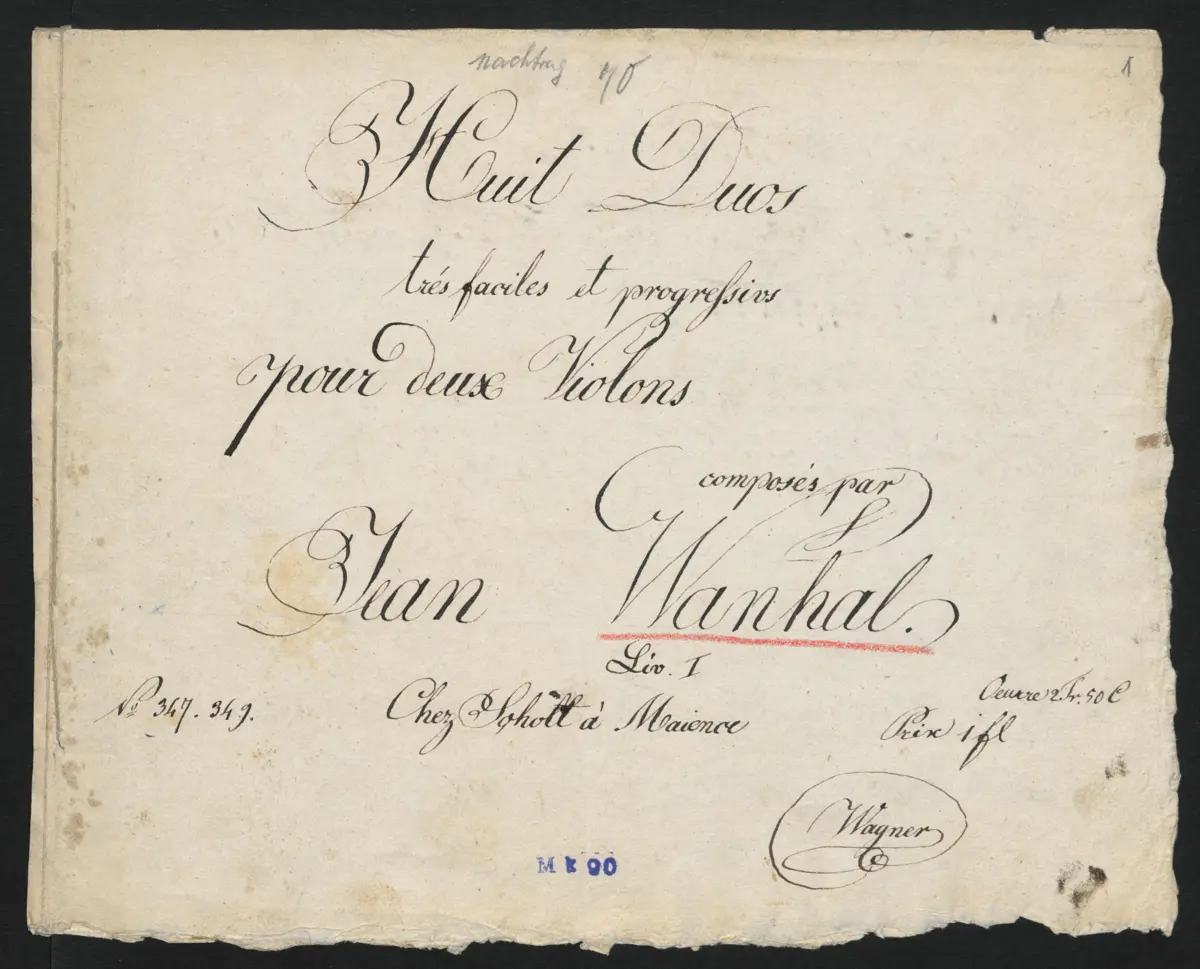 nachtrag 70
1
Huit Duos
trés faciles et progressivs
pour deux Violons
composés par
Jean Wanhal.
Liv. I
No 347. 349.
Chez Schott à Maience
Oeuvre 2 Fr. 50 C
Prix 1 fl
Wagner
M k 90